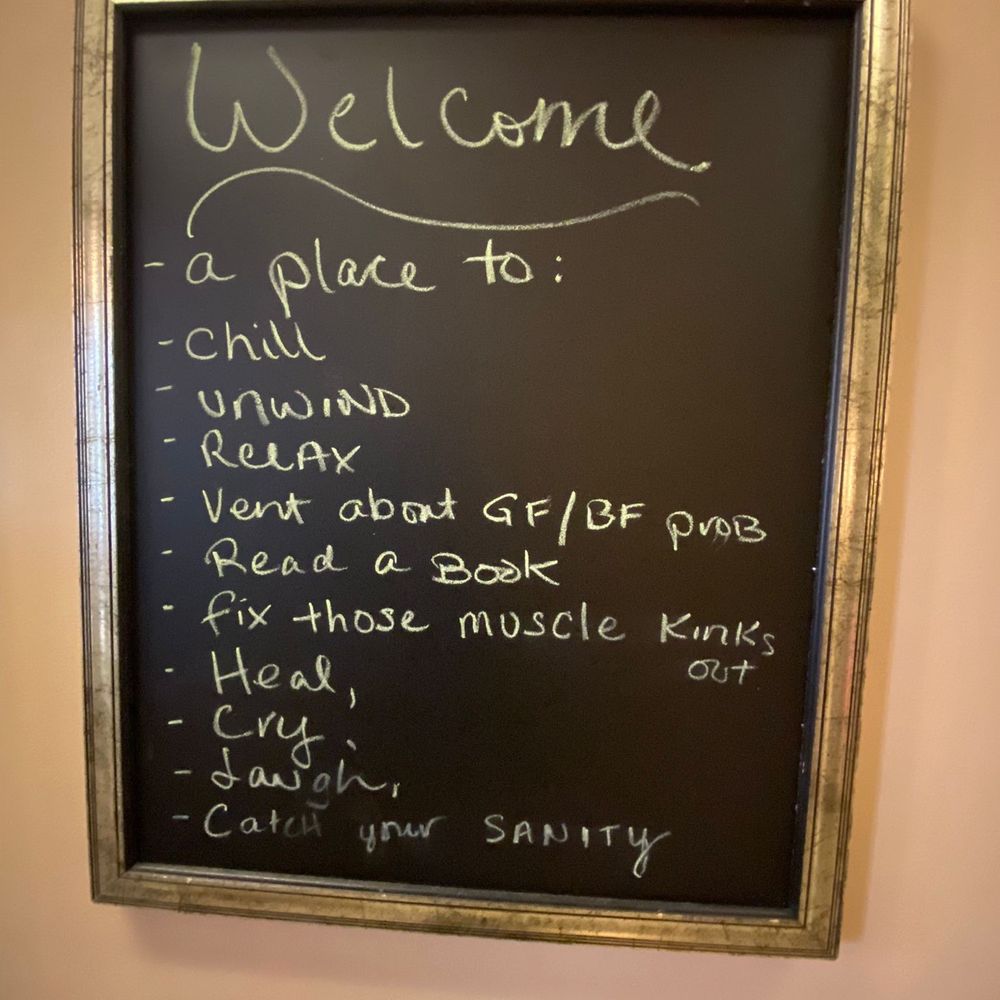 Welcome
- a place to:
- Chill
- UNWIND
- RelAX
- Vent about GF/BF proB
- Read a BooK
- fix those muscle Kinks
out
- Heal,
- Cry,
- Laugh,
- Catch your SANITY